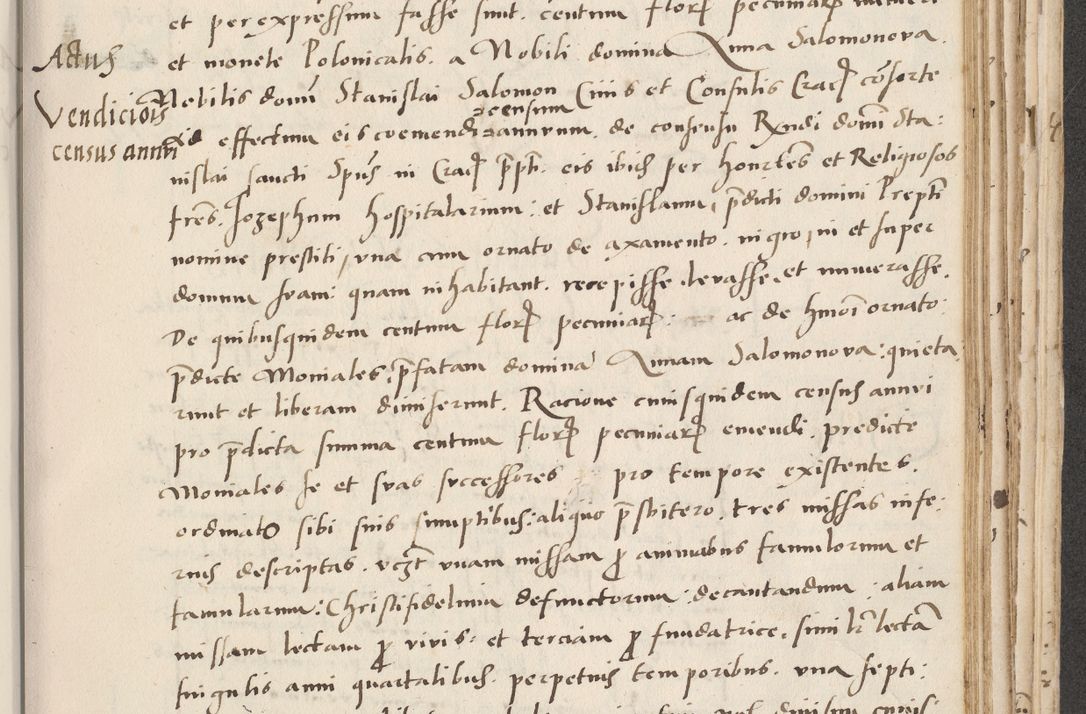 et per expressum fasse sunt. centum florꝭ pecuniarꝭ numeri
Actus
et monete Polonicalis. a Nobili domina Anna Salomonova.
Vendiciois
Nobilis domī Stanislai Salomon Civis et Consulis Cracꝭ cōsorte
census annui
ad effectum eis coemendi censum annuum. de consensu Rxndi domī Sta:
nislai sancti Spūs in Cracꝭ p̄pti. eis ibidē per honestos et Religiosos
fres. Jozephum hospitalarium: et Stanislaum, p̄dicti domini Prepti
nomine prestiti, una cum ornato de axamento. nigro, in et super
domum suam quam inhabitant. recepisse. levasse. et numerasse.
De quibusquidem centum florꝭ pecuniarꝭ: ac de hmōi ornato:
p̄dicte Moniales. p̄fatam dominā Annam Salomonova: quieta
runt et liberam dimiserunt. Racione cuiusquidem census annui
pro p̄dicta summa centum florꝭ pecuniarꝭ emendi. predicte
Moniales se et suas successores pro tempore existentes.
ordinato sibi suis sumptibus: aliquo p̄sbitero. tres missas infe:
rius descriptas. vcꝫt unam missam ꝓ animabus famulorum et
famularum: Christifidelium defunctorum: decantandum: aliam
missam lectam ꝓ vivis. et terciam ꝓ fundatrice. similr̄ lectā
singulis anni quartalibus. perpetuis temporibus. una septi: